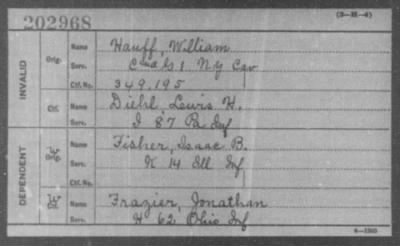 202968
(3—H—4)
INVALID
Orig.
Name Hauff, William
Serv. C and G 1 Ny Cav
Ctf. No. 349,195
Ctf.
Name Diehl, Lewis H.
Serv. I 87 Pa Inf
DEPENDENT
Orig.
Name Fisher, Isaac B.
Serv. K 14 Ill Inf
Ctf. No.
Ctf.
Name Frazier, Jonathan
Serv. H 62 Ohio Inf